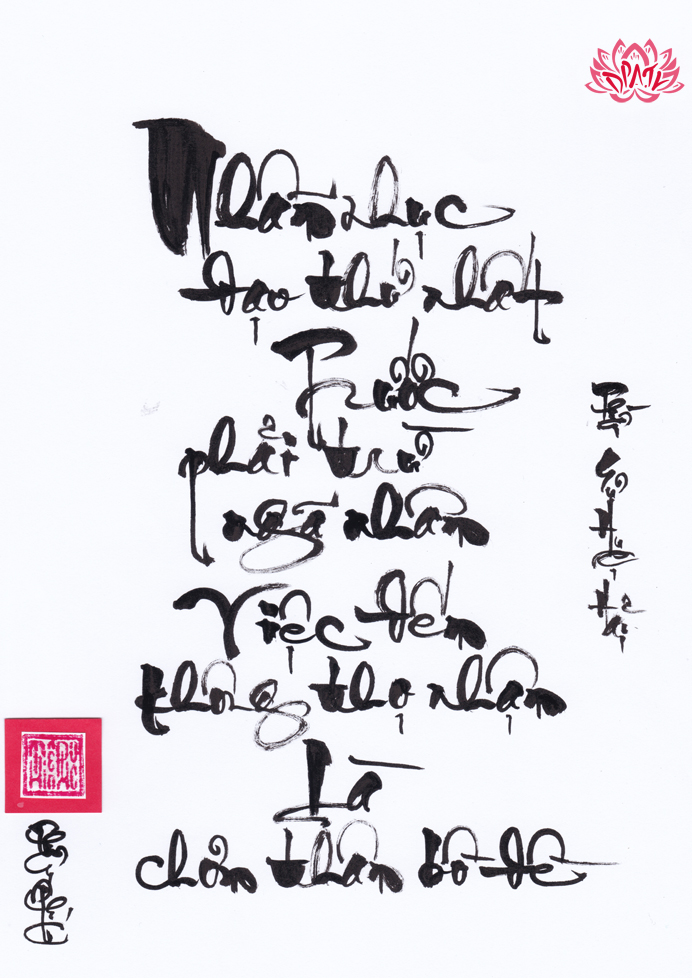 Nhẫn nhục
đạo thứ nhất
Trước
phải trừ
ngã nhân
Việc đến
không thọ nhận
Là
chơn thân bồ đề
Tổ
Sư
Huệ
Hải